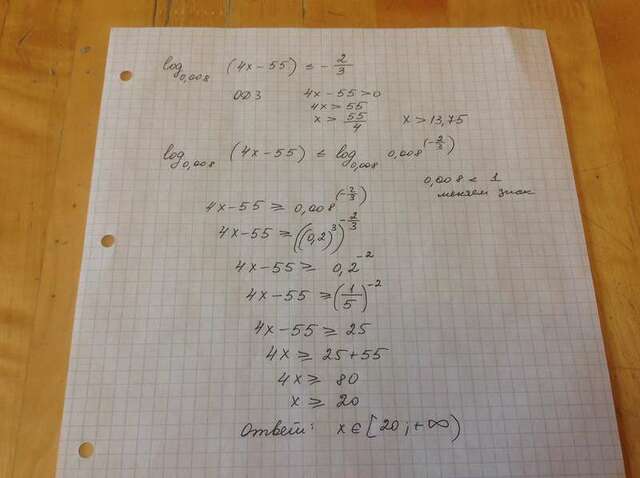 log₀,₀₀₈ (4x-55) ≤ -2/3
ОДЗ 4x-55>0
4x>55
x > 55/4 x>13,75
log₀,₀₀₈ (4x-55) ≤ log₀,₀₀₈ 0,008^(-2/3)
0,008 < 1
меняем знак
4x-55 ≥ 0,008^(-2/3)
4x-55 ≥ ((0,2)³)^-2/3
4x-55 ≥ 0,2⁻²
4x-55 ≥ (1/5)⁻²
4x-55 ≥ 25
4x ≥ 25+55
4x ≥ 80
x ≥ 20
Ответ: x∈[20;+∞)